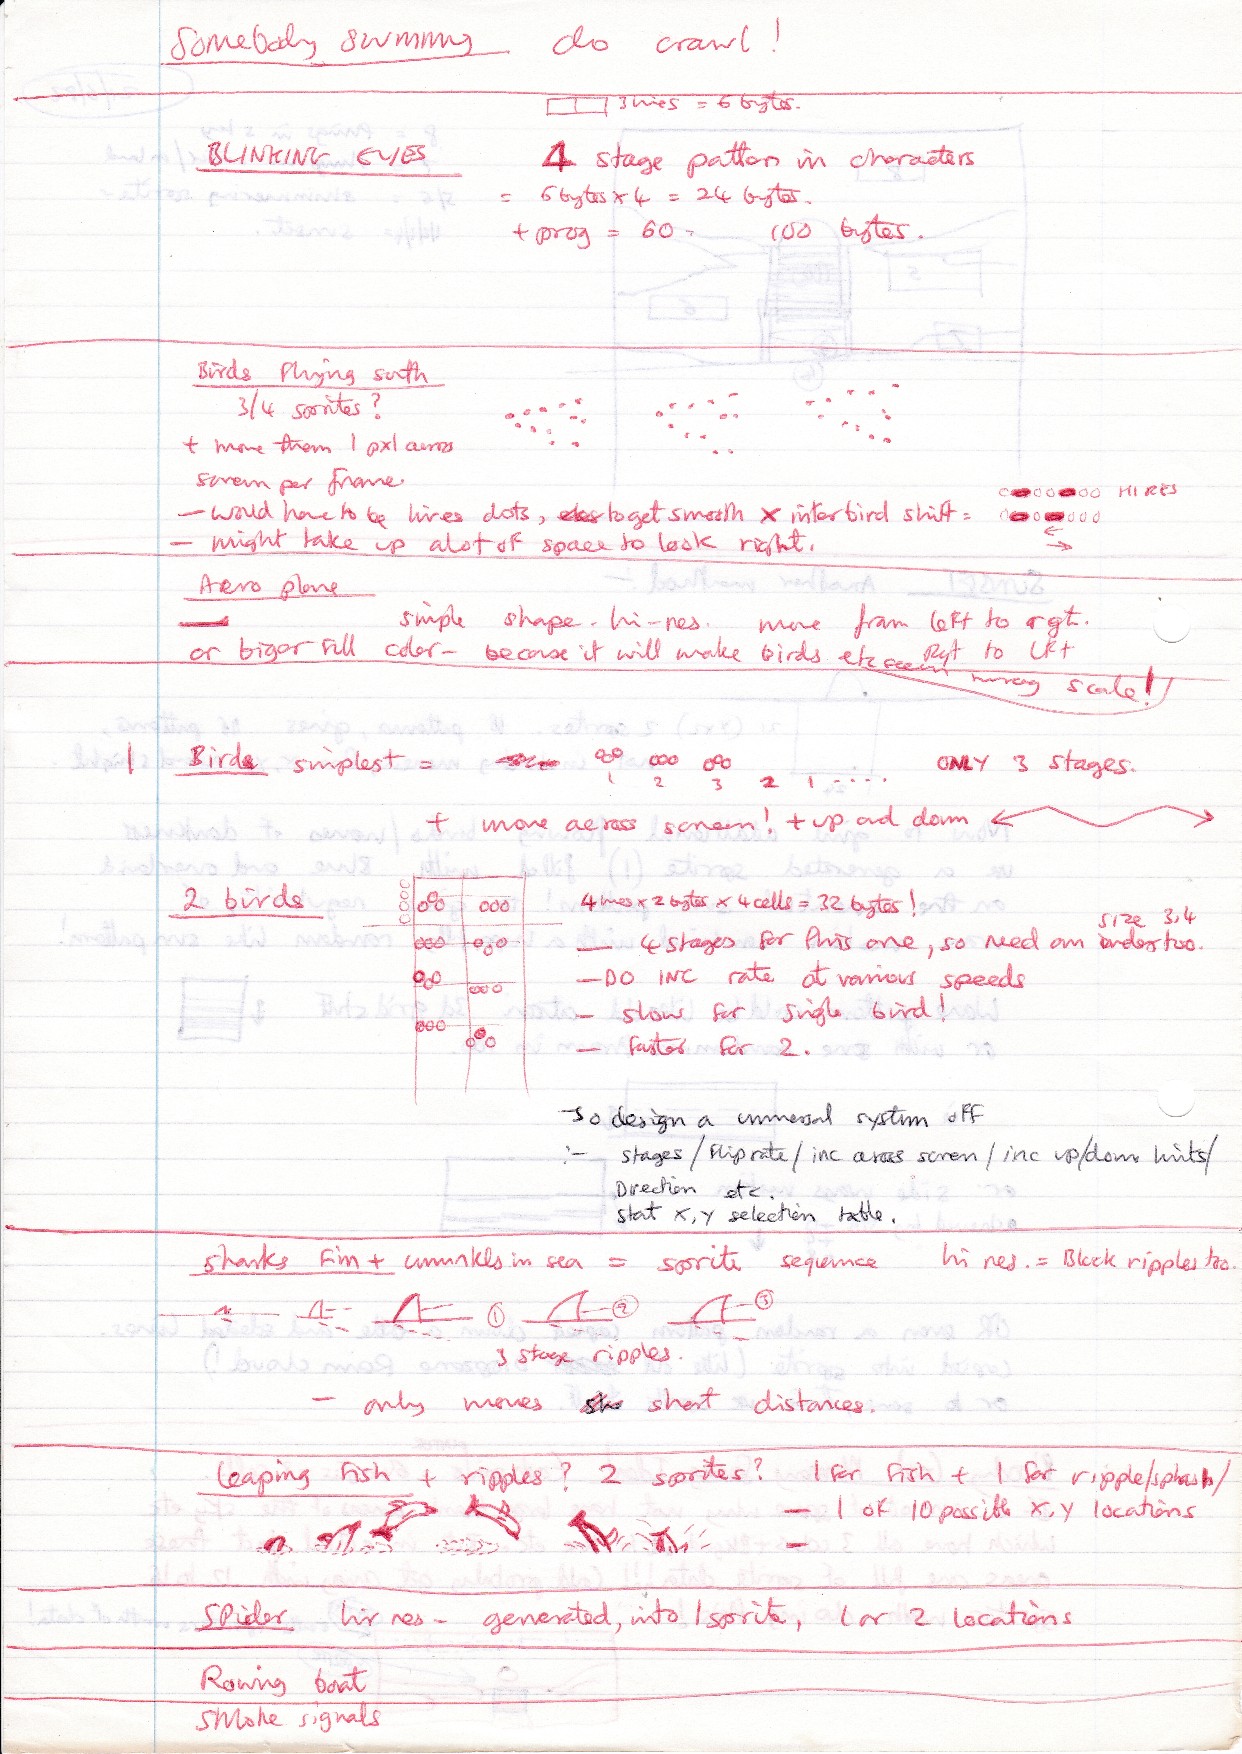 Somebody swimming do crawl!
3 lines = 6 bytes.
BLINKING EYES 4 stage pattern in characters
= 6 bytes x 4 = 24 bytes.
+ prog = 60 - 100 bytes.
Birds Flying south
3/4 sprites?
+ move them 1 pxl across
screen per frame.
HI RES
- would have to be hires dots, to get smooth x inter bird shift =
- might take up alot of space to look right.
Aero plane
simple shape. hi-res. move from left to rgt.
or bigger full color - because it will make birds etc seem Rgt to Lft
wrong scale!
1 Birds simplest = ONLY 3 stages.
1 2 3 2 1 ....
+ move across screen! + up and down
2 birds 4 lines x 2 bytes x 4 cells = 32 bytes!
size 3,4
- 4 stages for this one, so need an index too.
- DO INC rate at various speeds
- slow for single bird!
- faster for 2.
So design a universal system off
:- stages/flip rate/inc across screen/inc up/down limits/
Direction etc.
Start X,Y selection table.
sharks Fin + wrinkles in sea = sprite sequence hi res. = Black ripples too.
1 2 3
3 stage ripples.
- only moves short distances.
Leaping Fish + ripples? 2 sprites? 1 for fish + 1 for ripple/splash/
- 1 of 10 possible X,Y locations
-
SPider hi res - generated, into 1 sprite, 1 or 2 locations
Rowing boat
SMoke signals